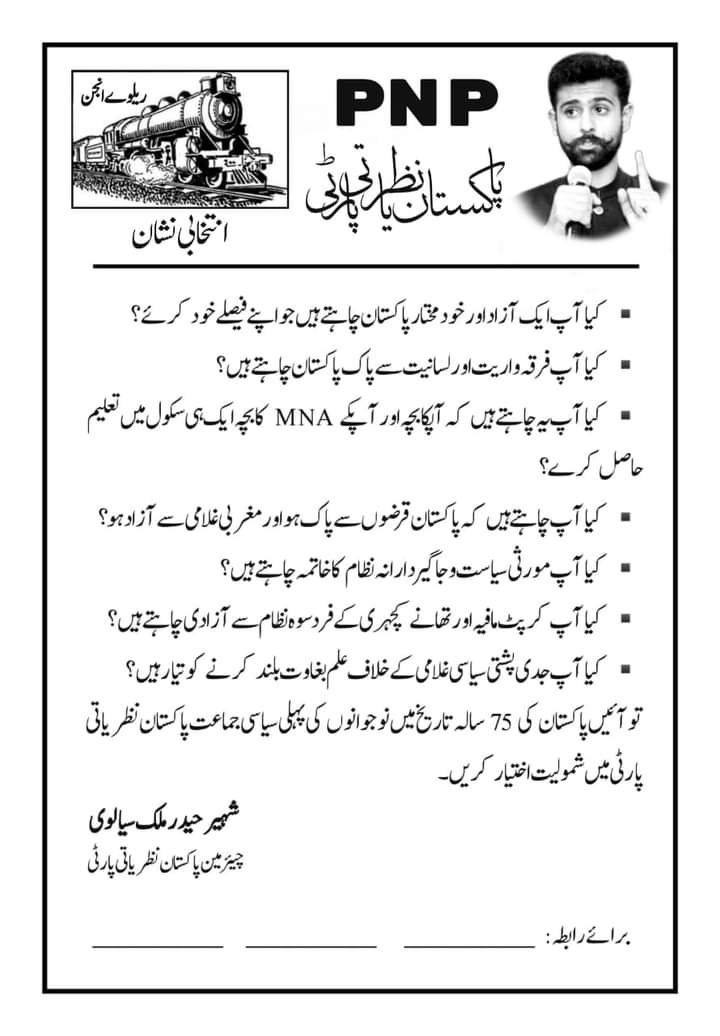 ریلوے انجن
انتخابی نشان
PNP
پاکستان نظریاتی پارٹی
▪ کیا آپ ایک آزاد اور خود مختار پاکستان چاہتے ہیں جو اپنے فیصلے خود کرئے؟
▪ کیا آپ فرقہ واریت اور لسانیت سے پاک پاکستان چاہتے ہیں؟
▪ کیا آپ یہ چاہتے ہیں کہ آپکا بچہ اور آپکے MNA کا بچہ ایک ہی سکول میں تعلیم
حاصل کرے؟
▪ کیا آپ چاہتے ہیں کہ پاکستان قرضوں سے پاک ہو اور مغربی غلامی سے آزاد ہو؟
▪ کیا آپ مورثی سیاست و جاگیردارانہ نظام کا خاتمہ چاہتے ہیں؟
▪ کیا آپ کرپٹ مافیہ اور تھانے کچہری کے فردسوہ نظام سے آزادی چاہتے ہیں؟
▪ کیا آپ جدی پشتی سیاسی غلامی کے خلاف علم بغاوت بلند کرنے کو تیار ہیں؟
تو آئیں پاکستان کی 75 سالہ تاریخ میں نوجوانوں کی پہلی سیاسی جماعت پاکستان نظریاتی
پارٹی میں شمولیت اختیار کریں۔
شہیر حیدر ملک سیالوی
چیئرمین پاکستان نظریاتی پارٹی
برائے رابطہ: ____________ ____________ ____________